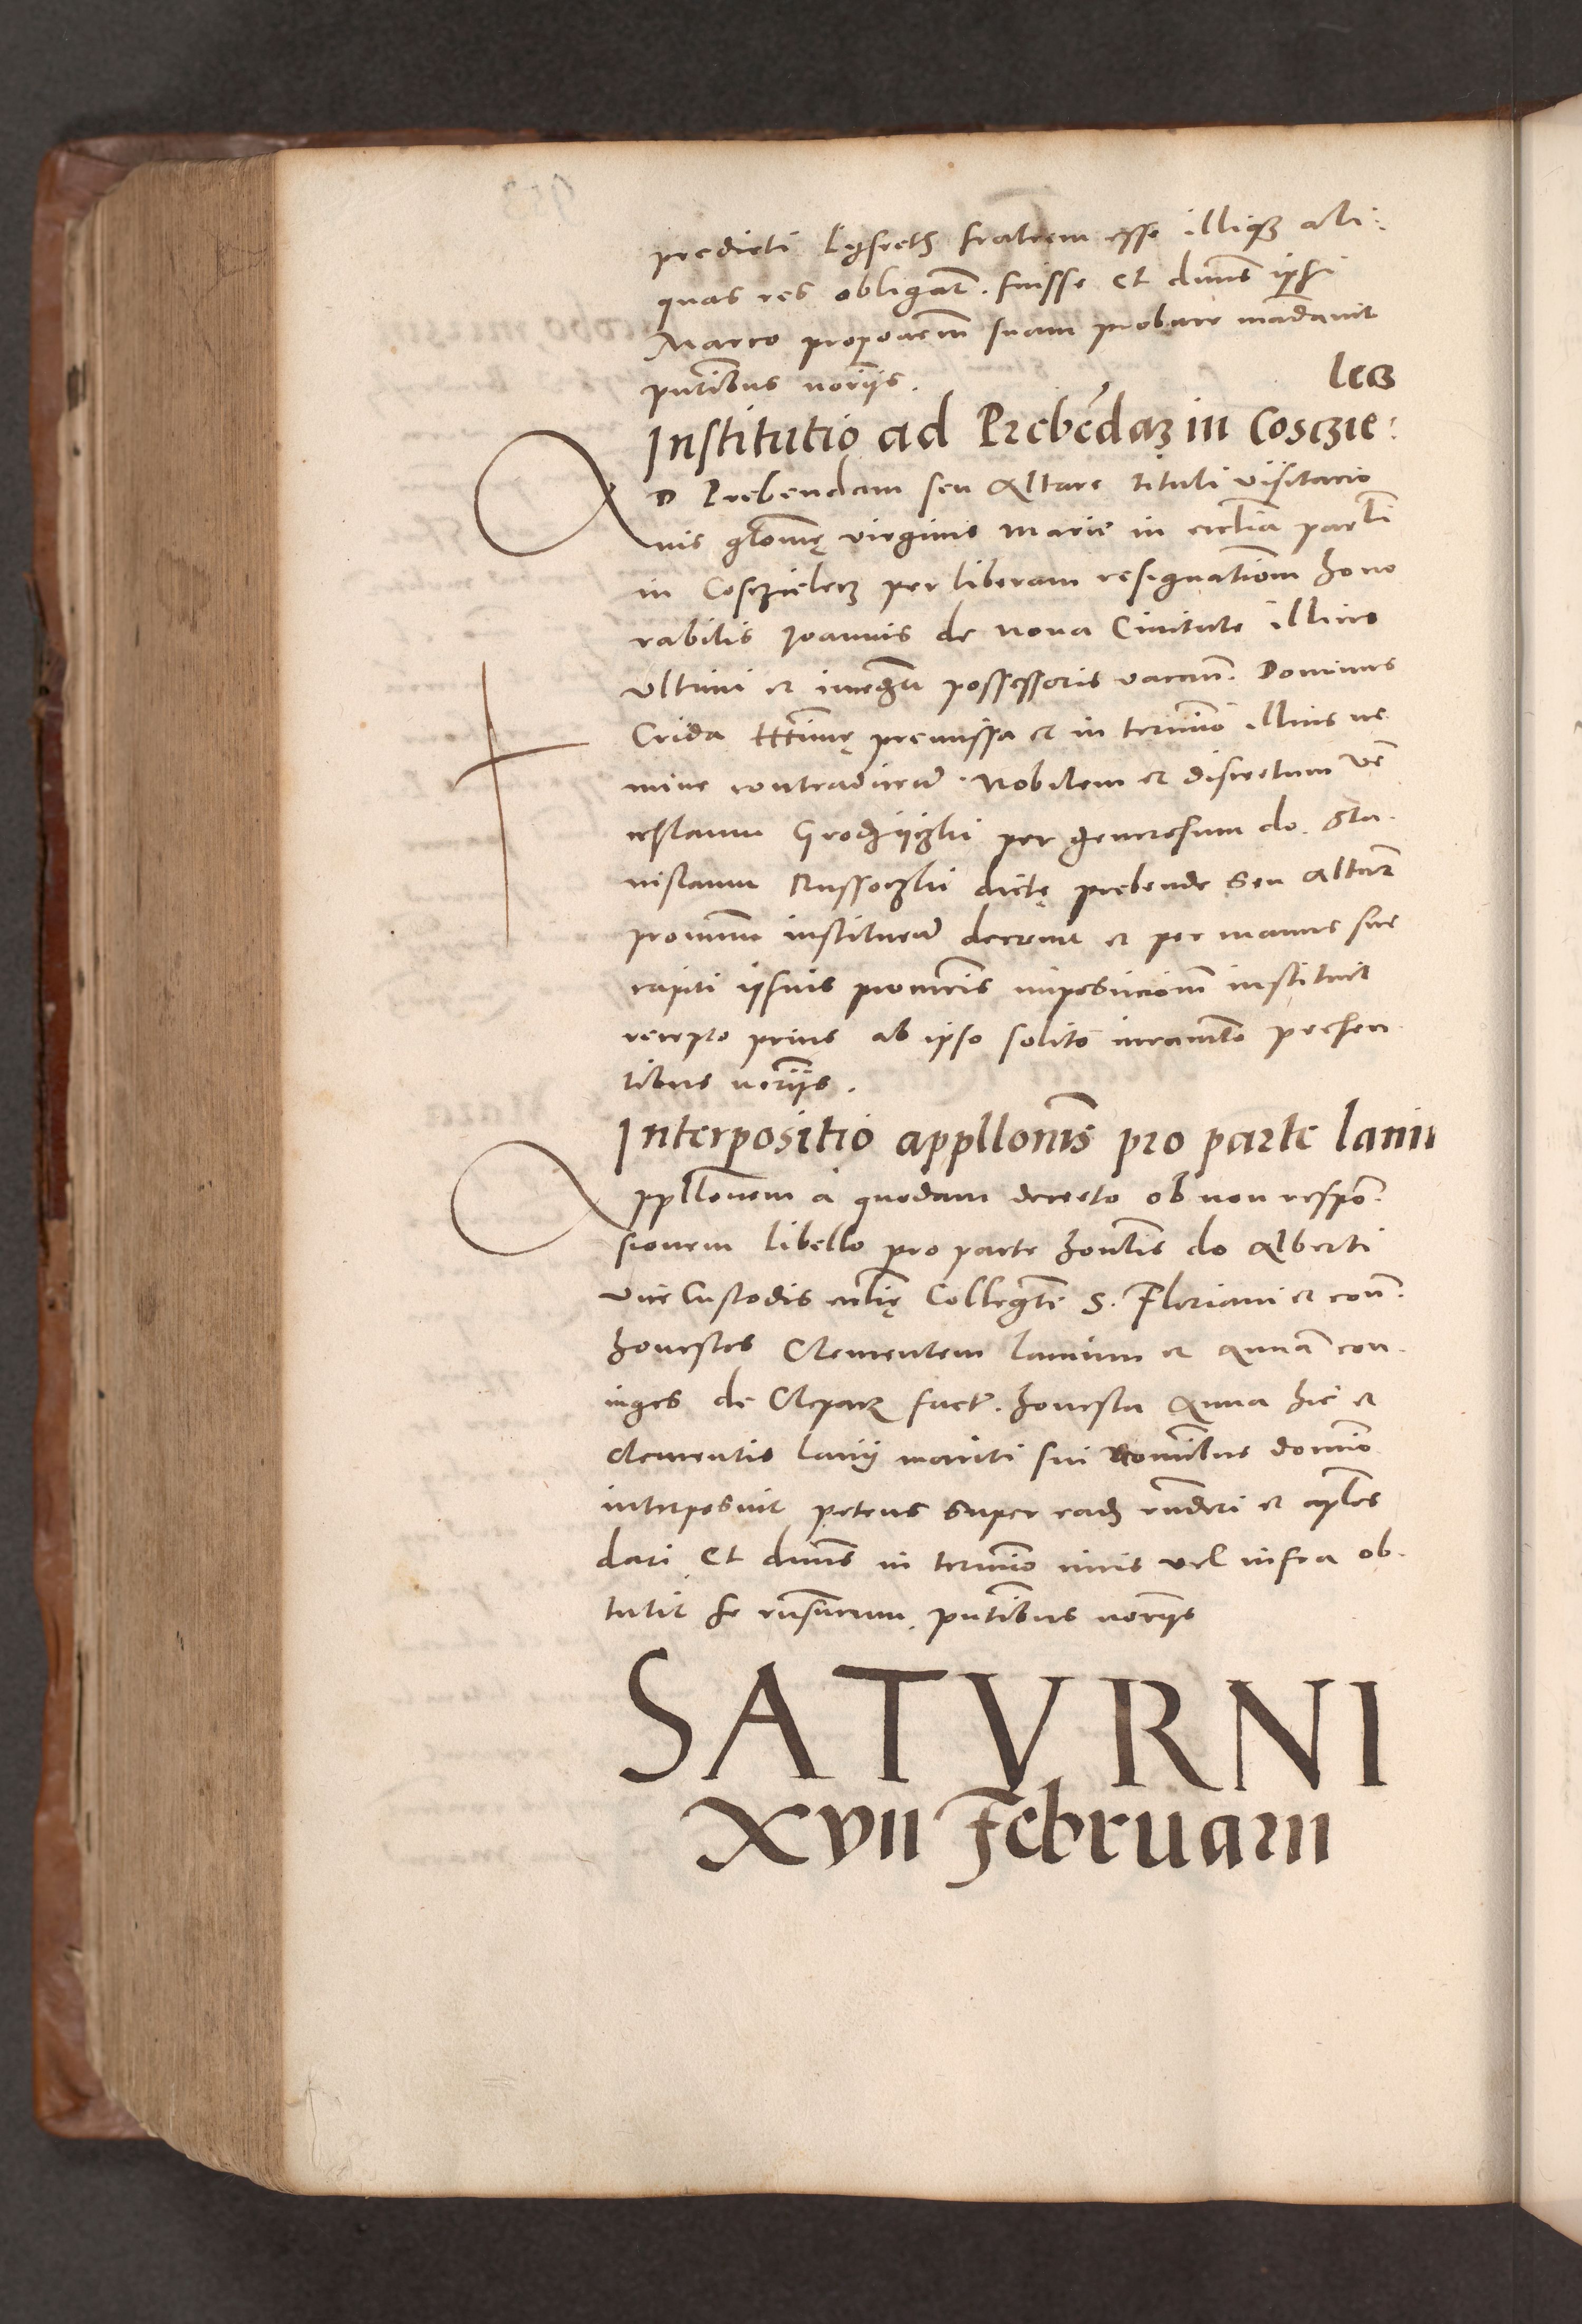 predicti Lysieth fratrem esse illiqz ali:
quas res obligat. fuisse et dnus ipsi
Marco proponem suam probare madavit
pntibus noriis.
lecz
Institutio ad Prebedaz in Cosczie:
A
D Prebendam seu Altare tituli visitacio
nis gloriose virginis Marie in ecclia parli
in Cosczielecz per liberam resignationem hono
rabilis Joannis de nova Civitate illius
ultimi et imediati possessoris vacan. Dominus
Crida lttime premissa et in termio illius ne
mine contradicen. Nobilem et discretum Ve
ceslaum Grodzyczki per generosum do. Sta
nislaum Russoczki dicte prebende seu Altari
pronum instituend decrevit et per manus sue
capiti ipsius pronteis imposicionem instituit
recepto prius ab ipso solito iuramto presen
tibus noriis.
Interpositio appllonis pro parte lanii
A
ppllonem a quodam decreto ob non respon
sionem libello pro parte honlis do Alberti
vice Custodis ecclie Collegte S. Floriani et con.
honestos Clementem lanium et Anna con
iuges de Cleparz fact. honesta Anna hic et
Clementis lanii mariti sui Nominibus domio
interposuit petens super eadz rnderi et aplos
dari Et dnus in termio iuris vel infra ob
tulit se rnsurum. pntibus noriis
SATVRNI
XVII Februarii